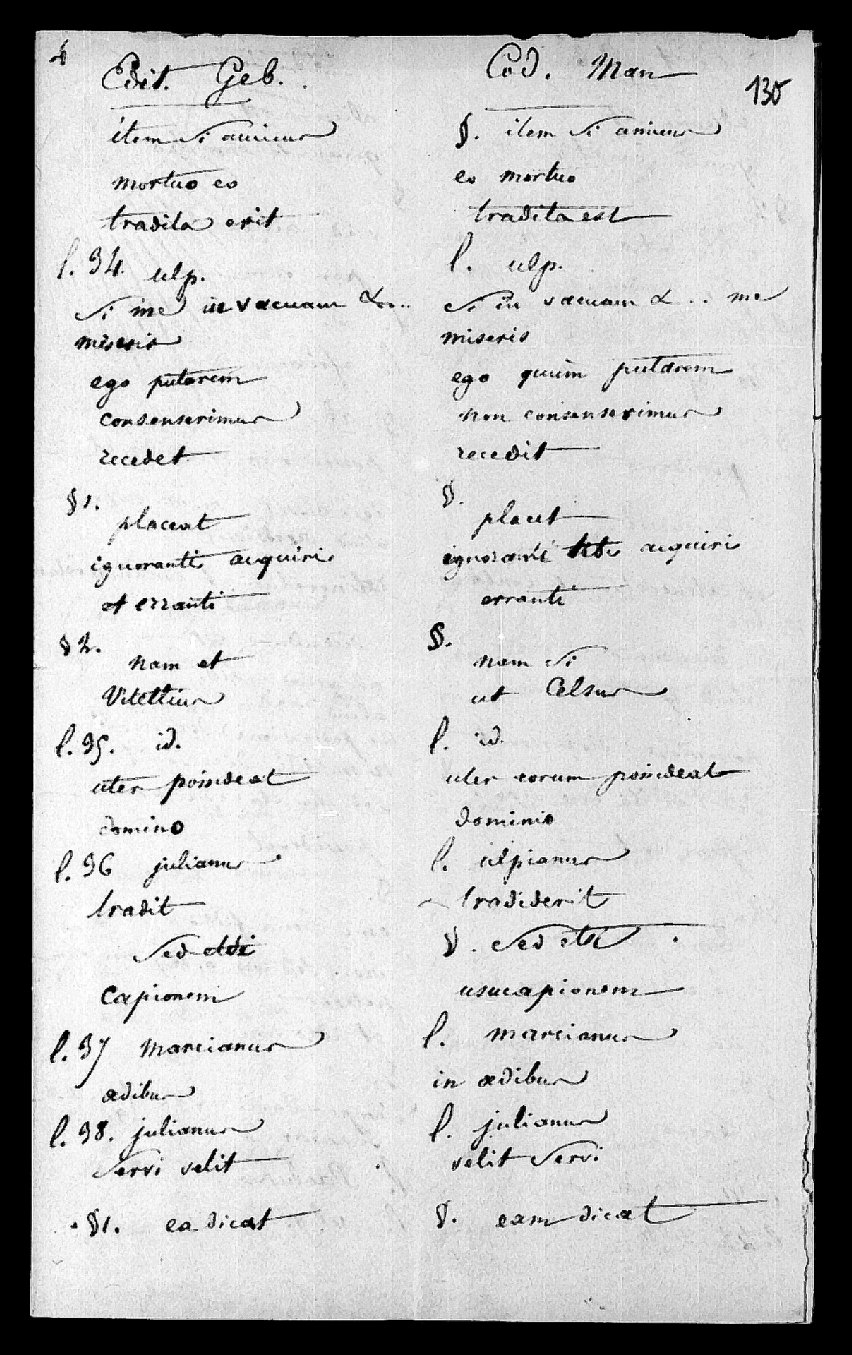 Edit. Geb.
item si amicus
mortuo eo
tradita erit
l. 34. ulp.
Si me in vacuam &...
miseris
ego putarem
consenserimus
recedet
§ 1.
placeat
ignoranti acquiri
et erranti
§ 2.
nam et
Vitellius
l. 35. id.
uter possideat
domino
l. 36 julianus
tradit
Sed etsi
capionem
l. 37 marcianus
ædibus
l. 38. julianus
Servi velit
§ 1. ea dicat
Cod. Man
130
§. item si amicus
eo mortuo
tradita est
l. ulp.
Si in vacuam &... me
miseris
ego quum putarem
non consenserimus
recedit
§.
placet
ignoranti tibi acquiri
erranti
§.
nam si
ut Celsus
l. id.
uter eorum possideat
dominio
l. ulpianus
tradiderit
§. Sed etsi
usucapionem
l. marcianus
in ædibus
l. julianus
velit servi
§. eam dicat